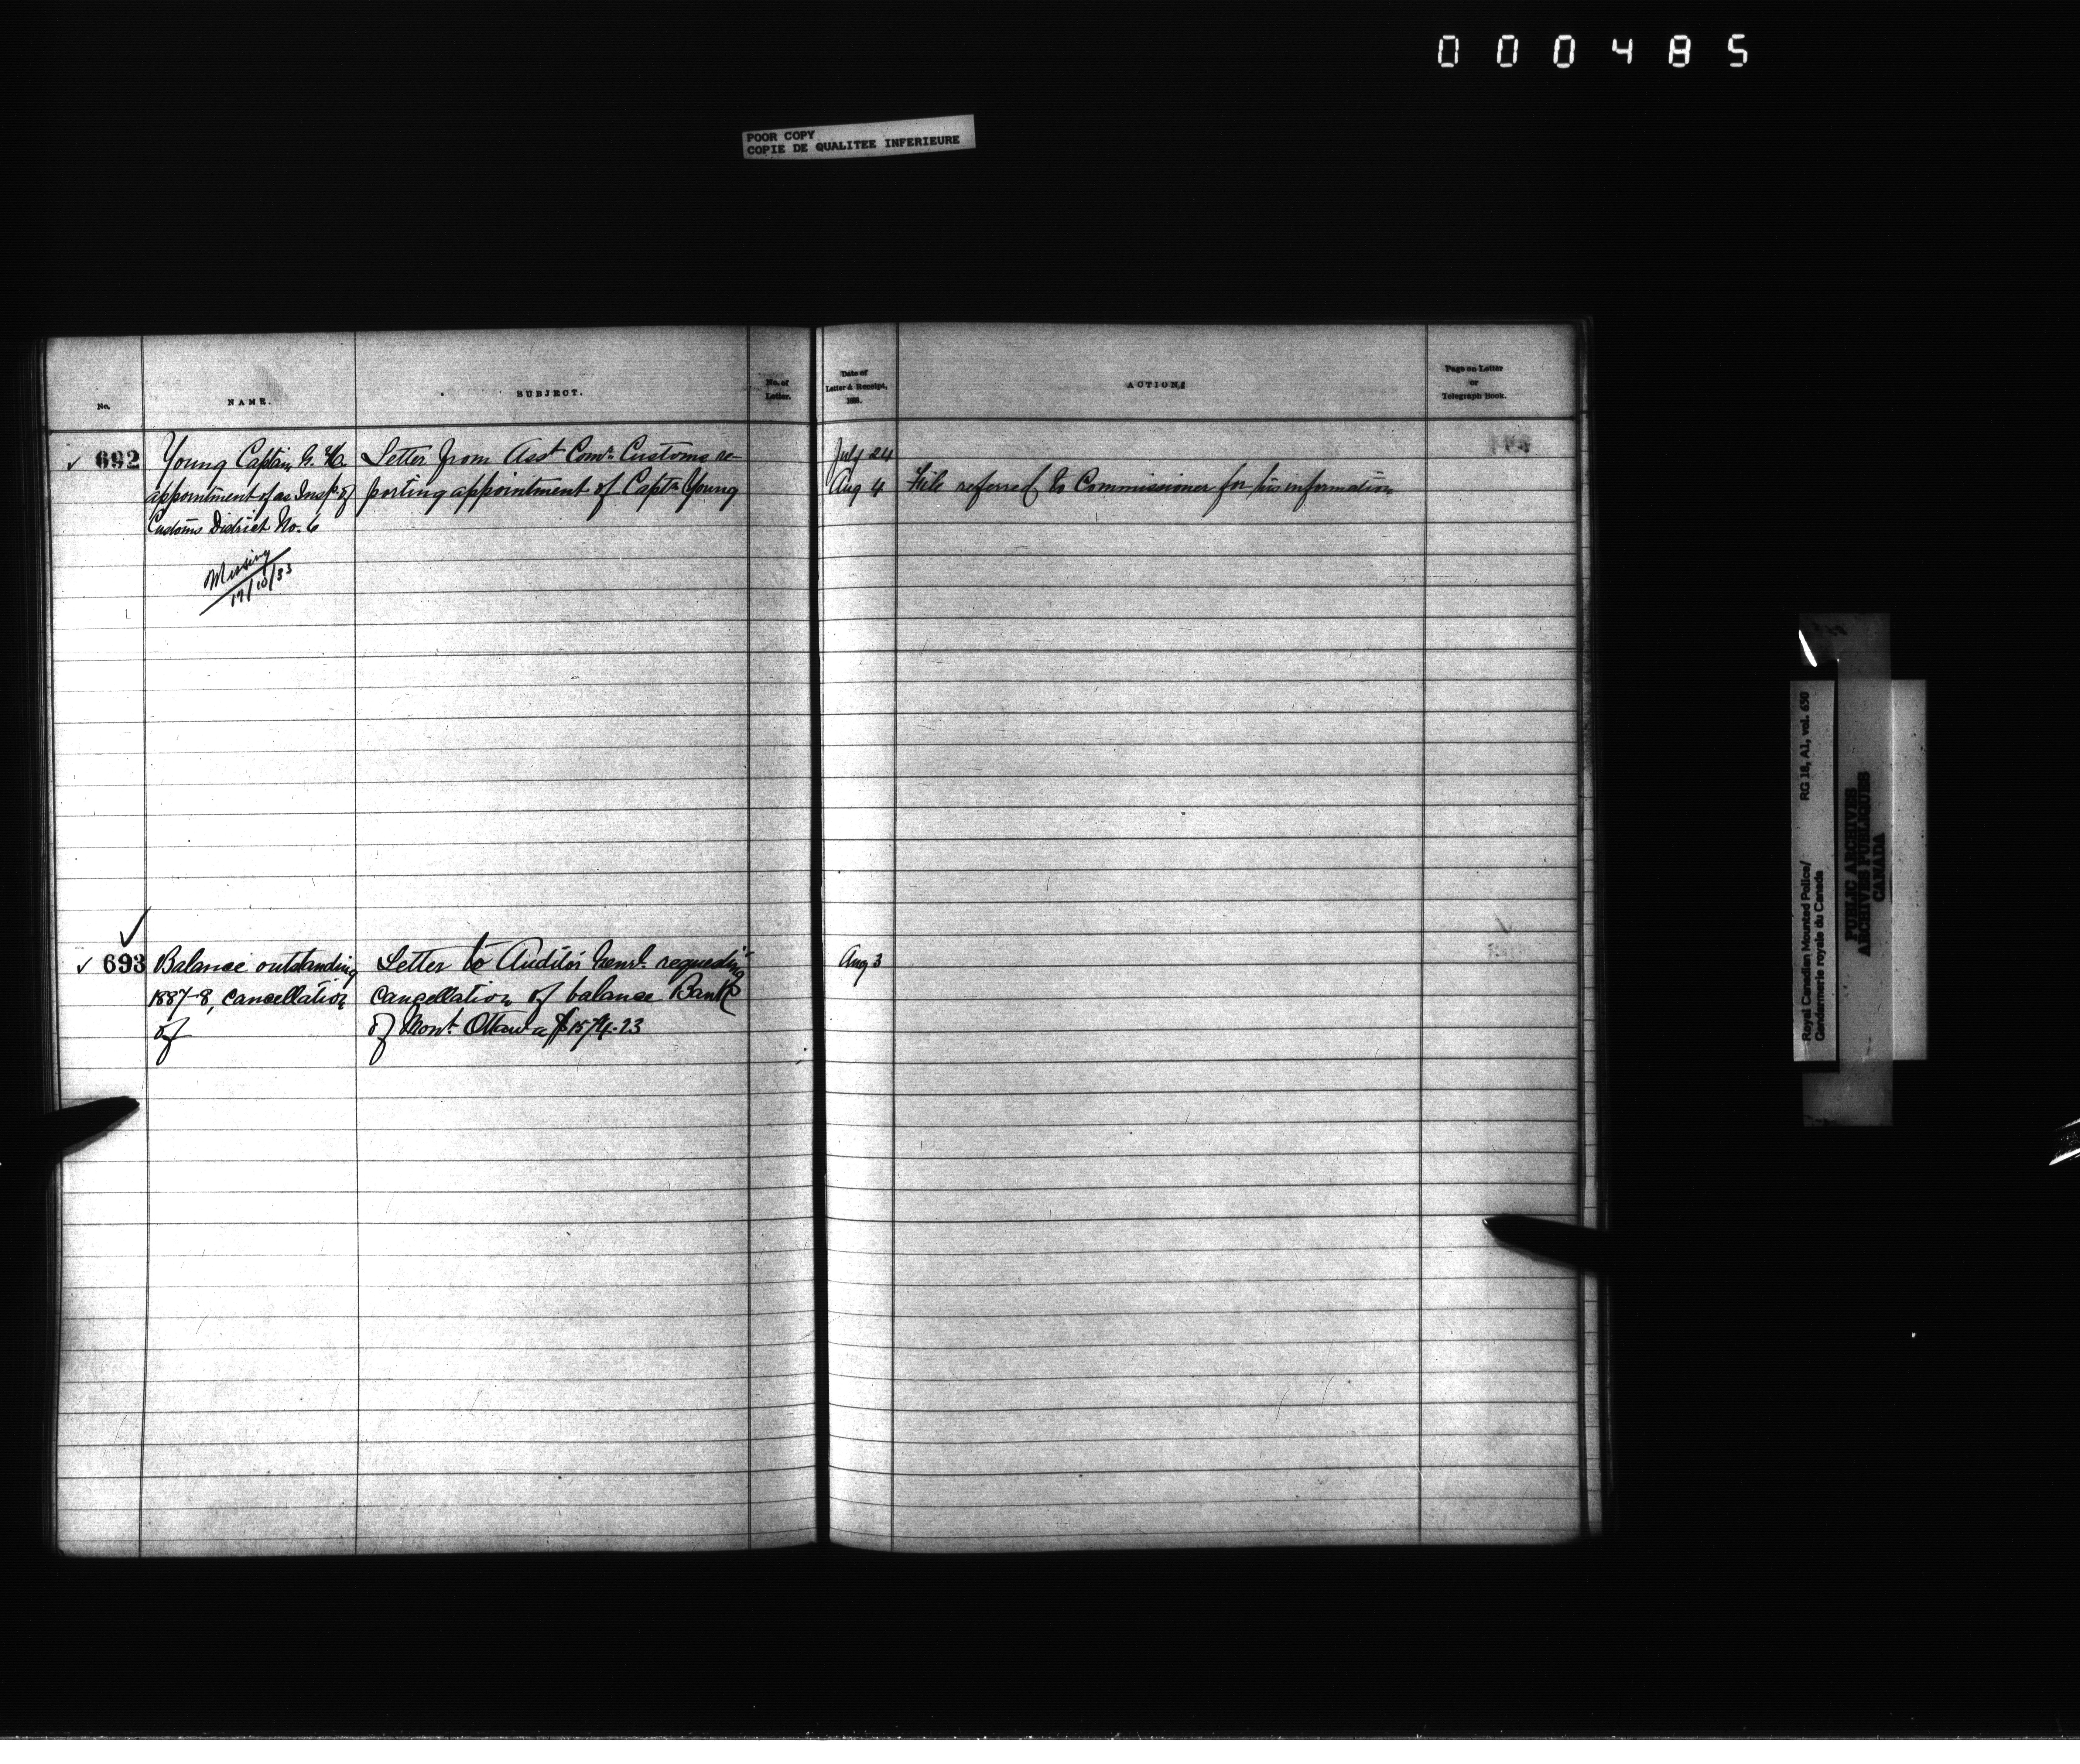 000485
POOR COPY
COPIE DE QUALITEE INFERIEURE
No.
NAME.
SUBJECT.
No. of
Letter.
Date of
Letter & Receipt,
188 .
ACTION.
Page on Letter
or
Telegraph Book.
✓ 692
Young Captain G. H.
appointment of as Inspr. of
Customs District No. 6
Missing
17/10/33
Letter from Asst Comr. Customs re-
porting appointment of Captn Young
July 24
Aug 4
File referred to Commissioner for his information
✓
✓ 693
Balance outstanding
1887-8, cancellation
of
Letter to Auditor Genrl. requesting
cancellation of balance Bank
of Mont. Ottawa $1574.23
Aug 3
Royal Canadian Mounted Police/
Gendarmerie royale du Canada
RG 18, A1, vol. 650
PUBLIC ARCHIVES
ARCHIVES PUBLIQUES
CANADA